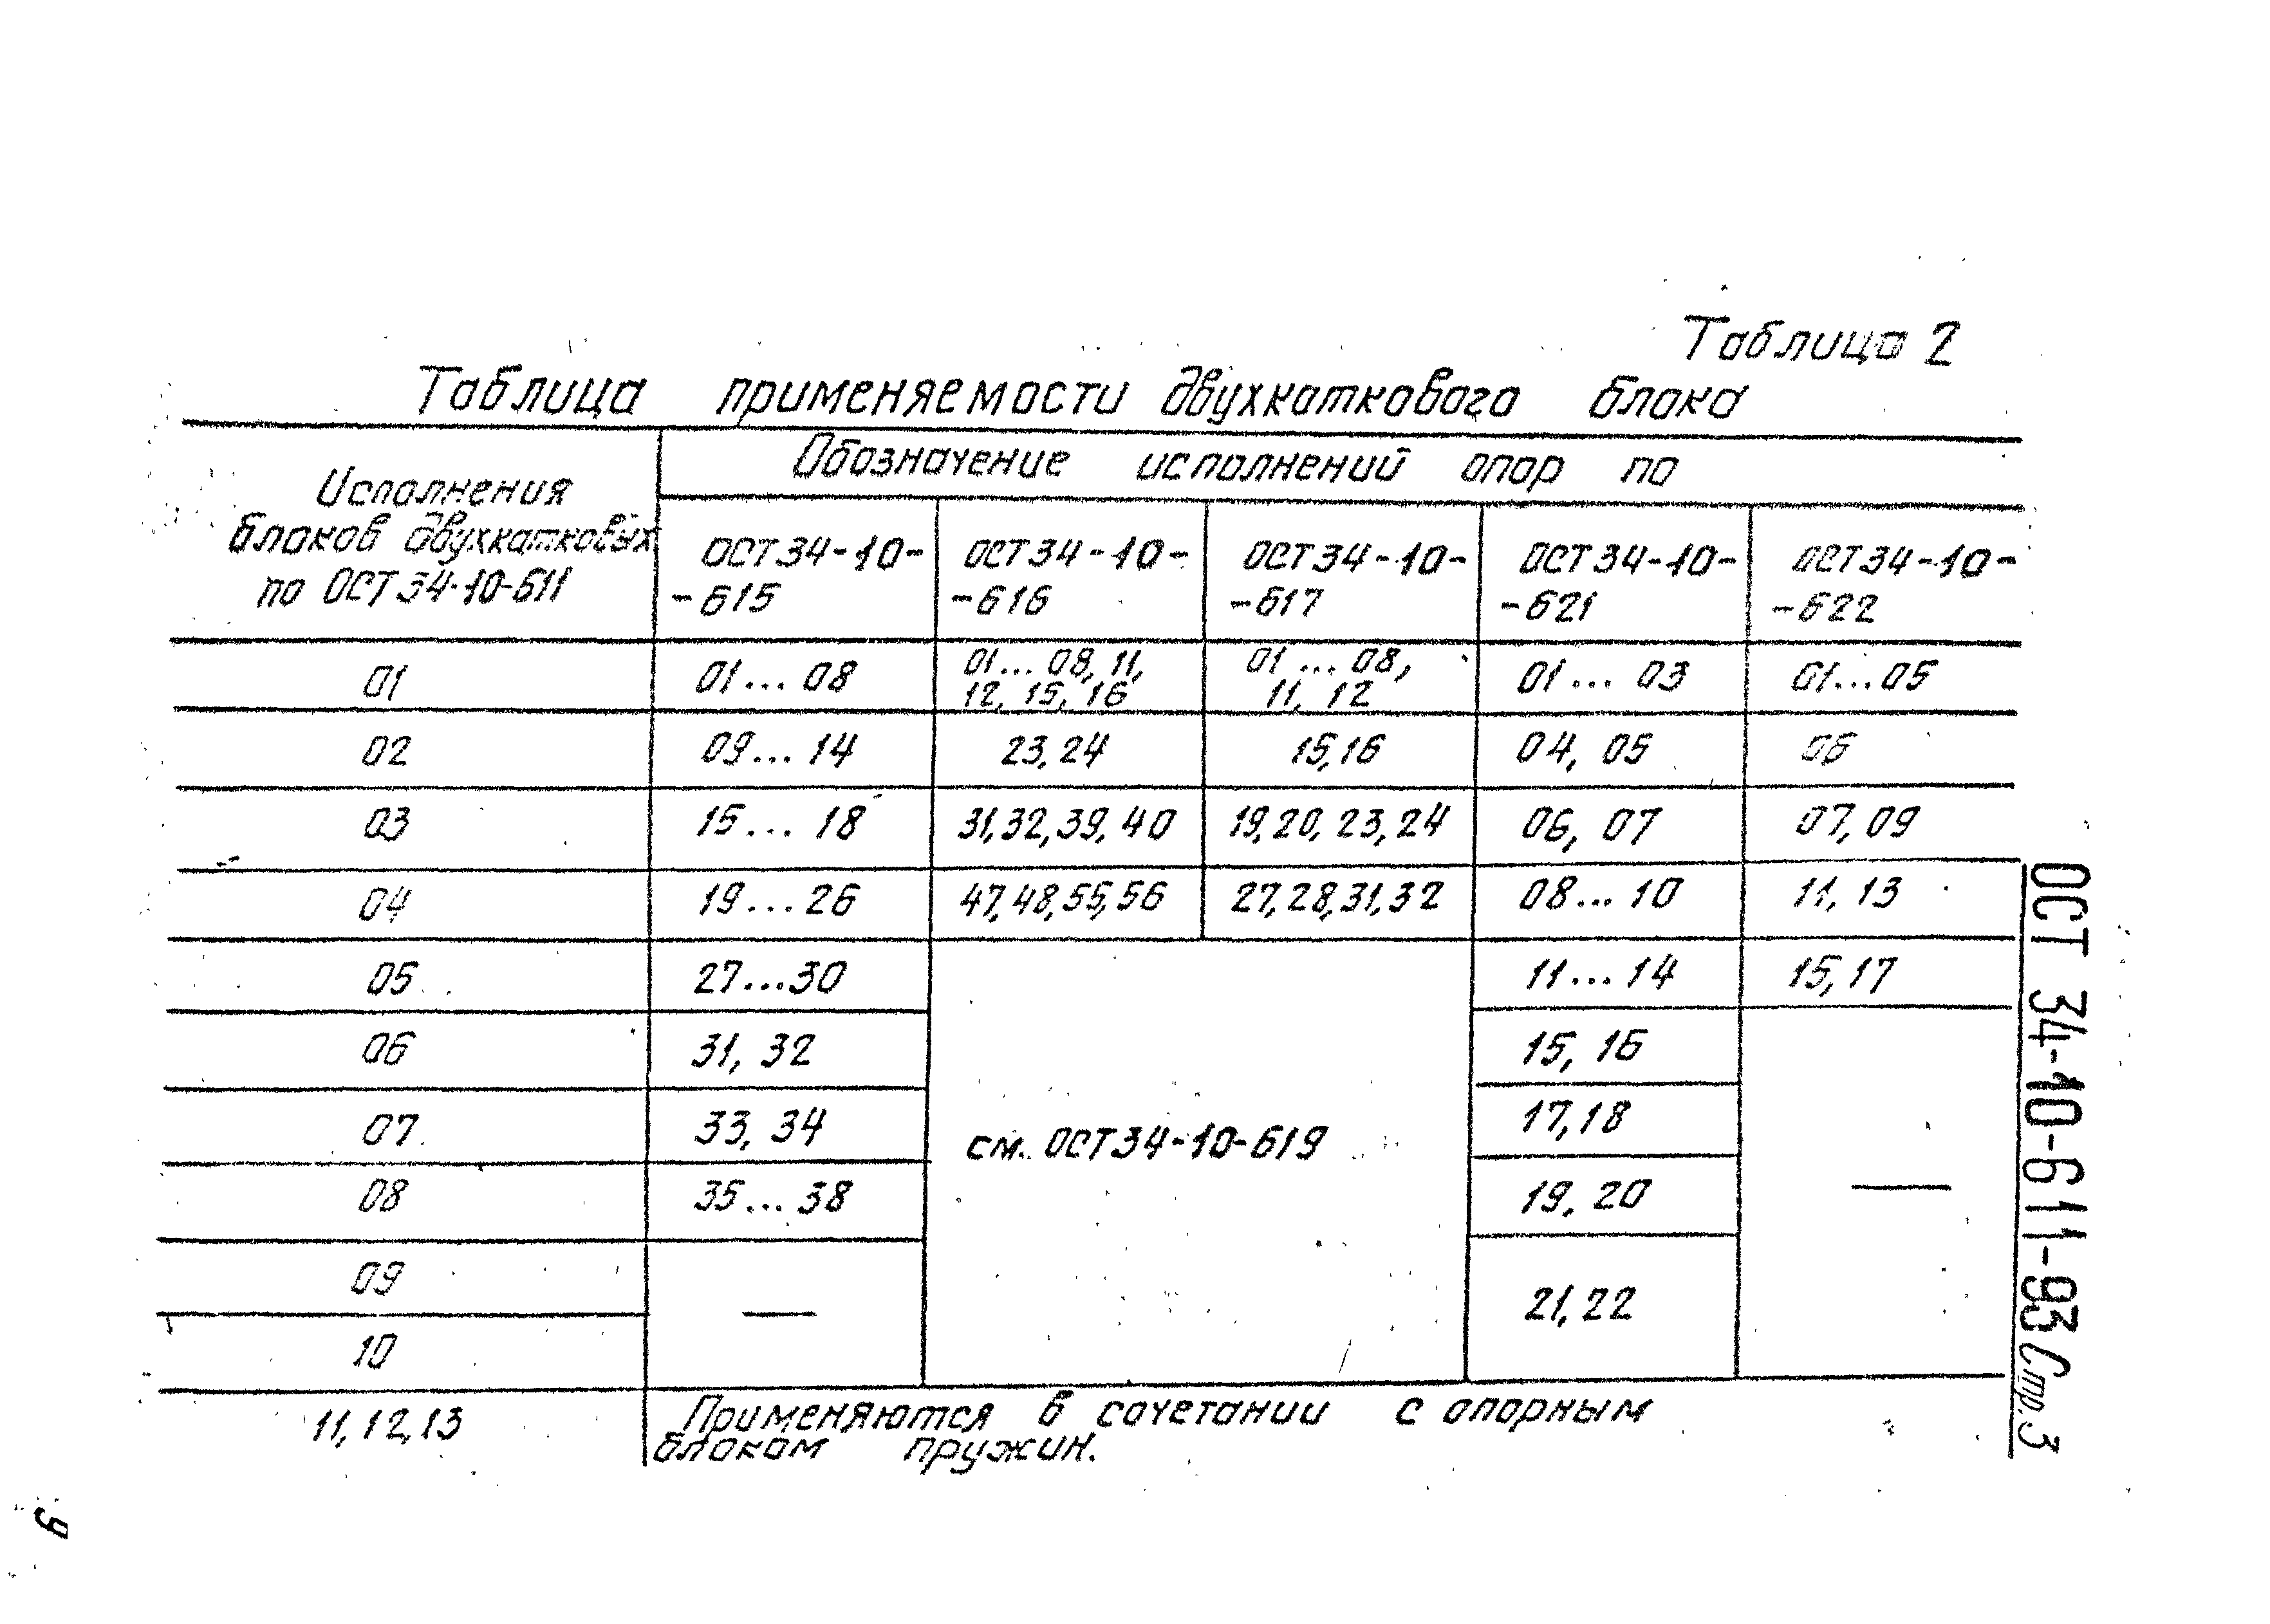 Таблица 2
Таблица применяемости двухкаткового блока
Исполнения
блоков двухкатковых
по ОСТ 34-10-611
Обозначение исполнений опор по
ОСТ 34-10-
-615
ОСТ 34-10-
-616
ОСТ 34-10-
-617
ОСТ 34-10-
-621
ОСТ 34-10-
-622
01
01...08
01...08, 11,
12, 15, 16
01...08,
11, 12
01...03
01...05
02
09...14
23, 24
15, 16
04, 05
06
03
15...18
31, 32, 39, 40
19, 20, 23, 24
06, 07
07, 09
04
19...26
47, 48, 55, 56
27, 28, 31, 32
08...10
11, 13
05
27...30
см. ОСТ 34-10-619
11...14
15, 17
06
31, 32
15, 16
—
07
33, 34
17, 18
08
35...38
19, 20
09
—
21, 22
10
11, 12, 13
Применяются в сочетании с опорным
блокам пружин.
ОСТ 34-10-611-93 Стр. 3
9